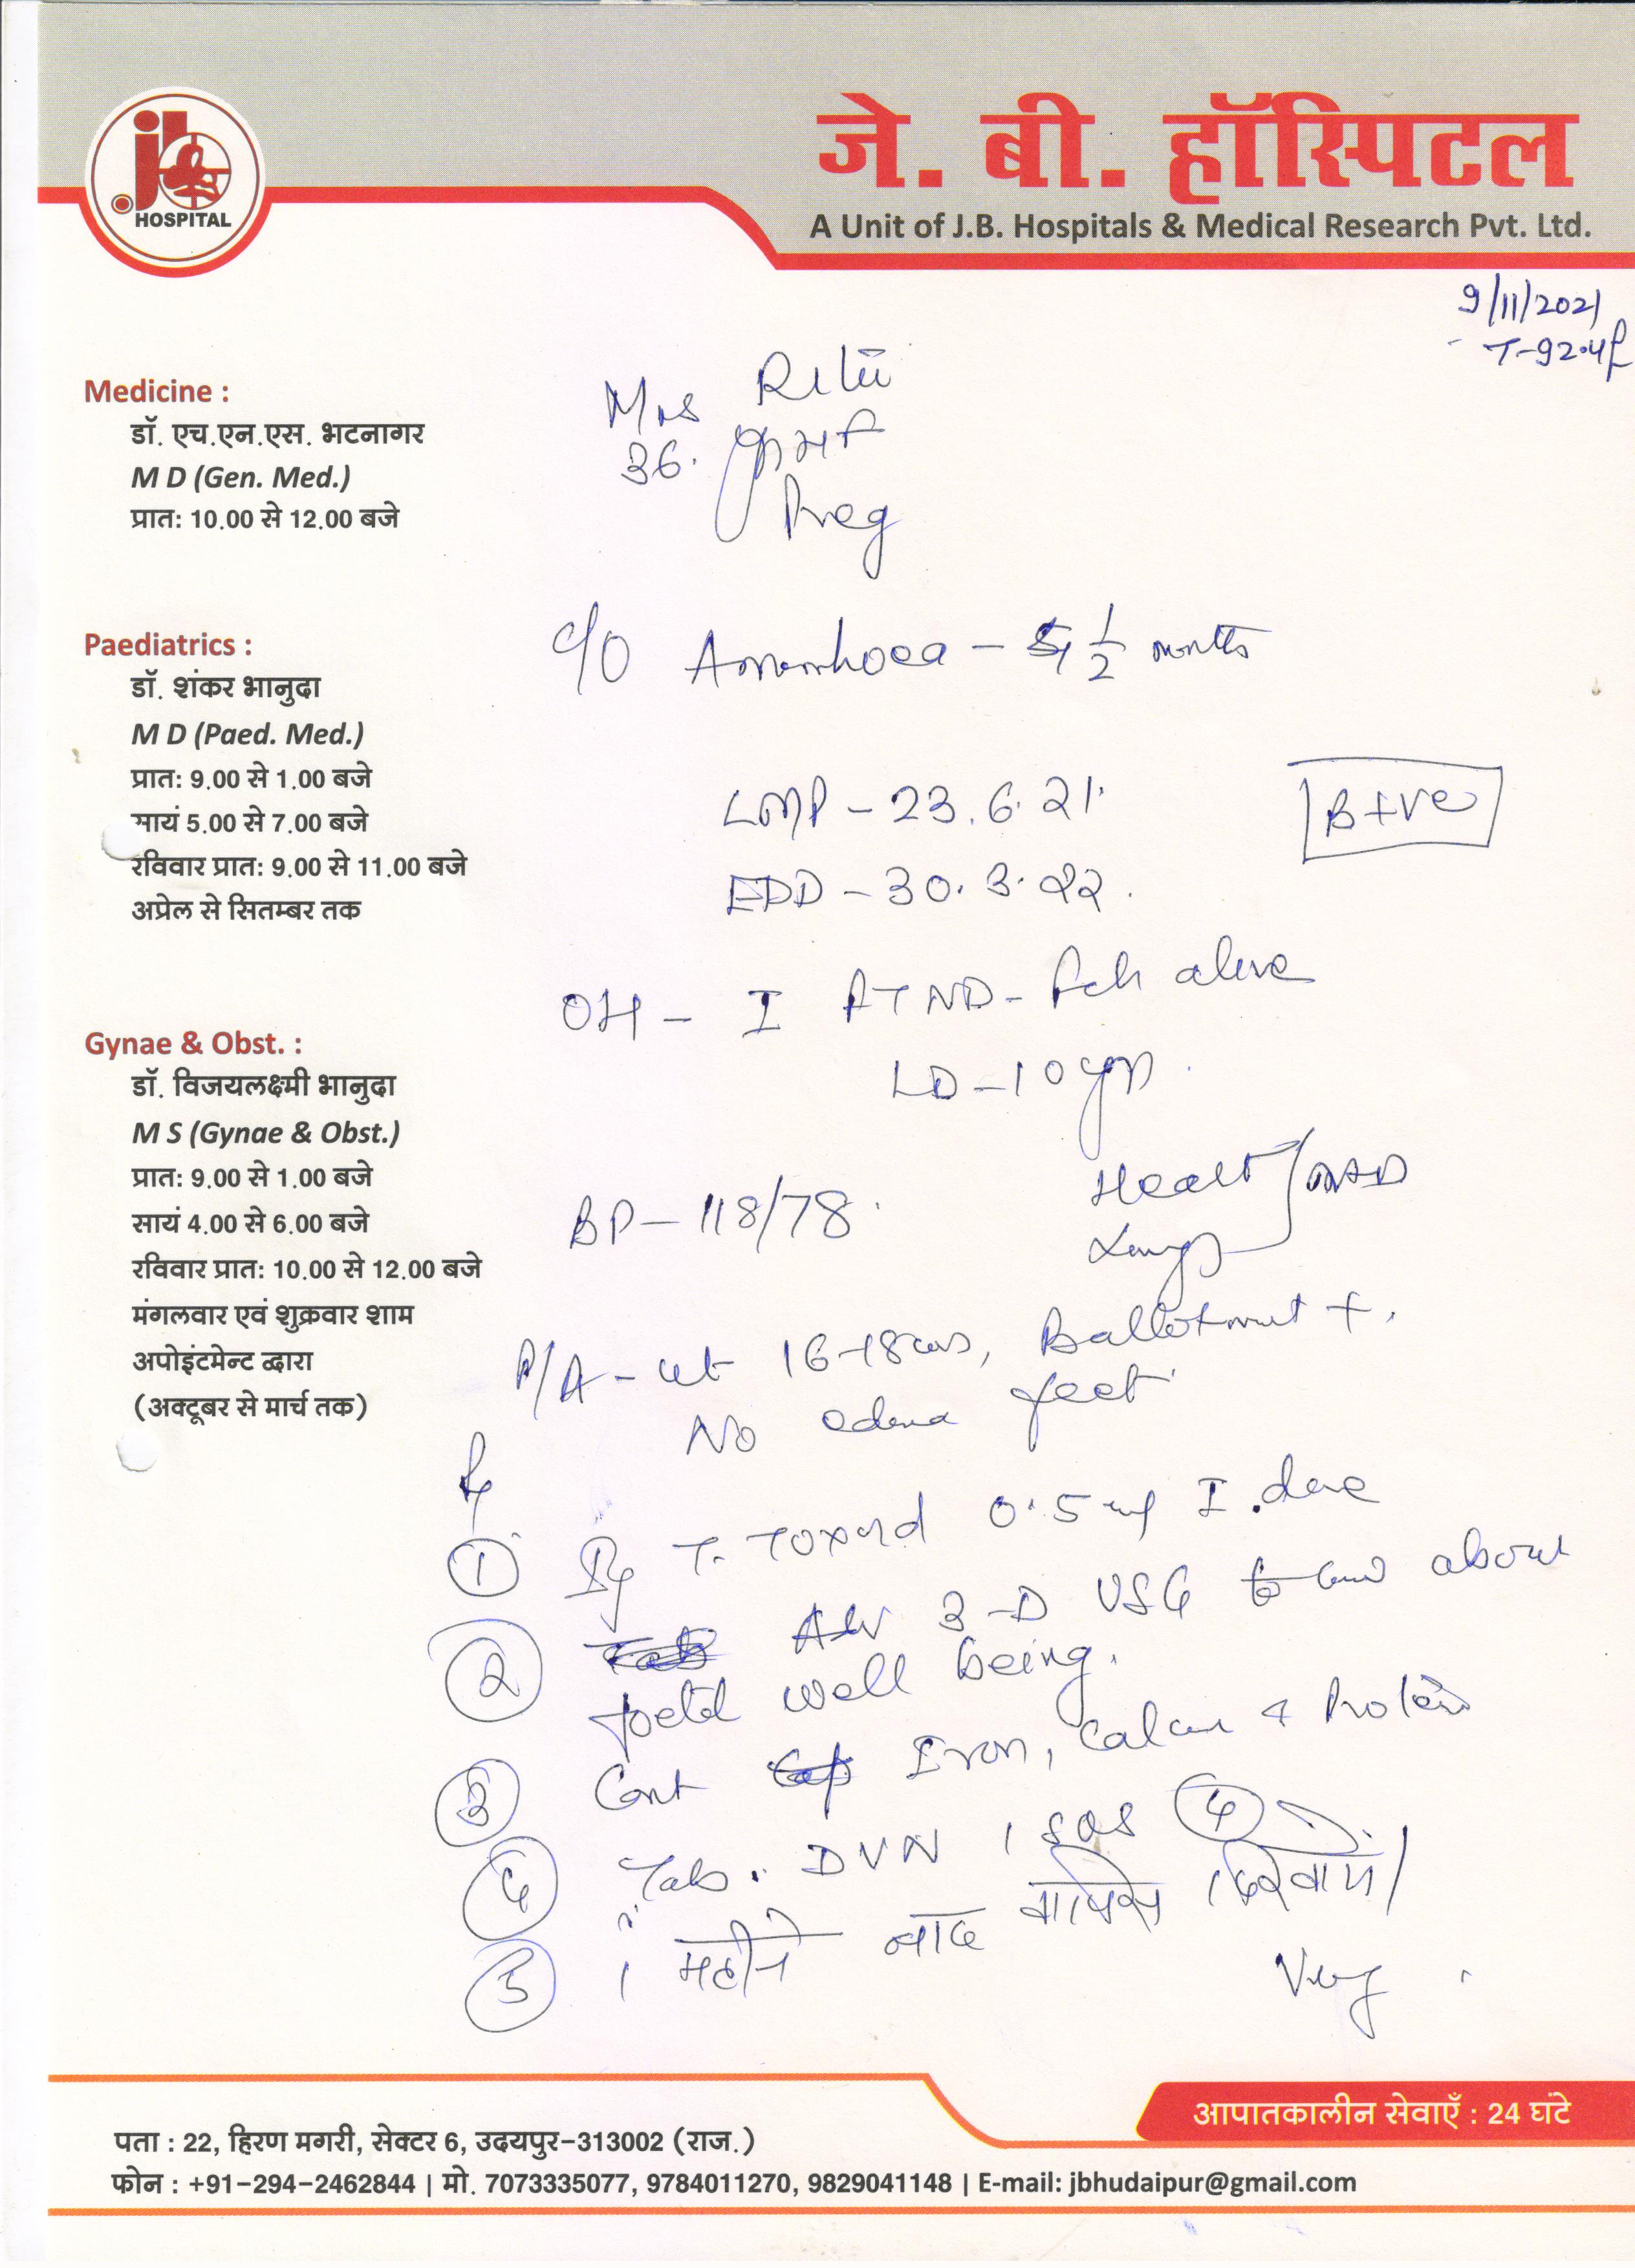 jb
HOSPITAL
जे. बी. हॉस्पिटल
A Unit of J.B. Hospitals & Medical Research Pvt. Ltd.
9/11/2021
T-92.4f
Medicine :
डॉ. एच.एन.एस. भटनागर
M D (Gen. Med.)
प्रात: 10.00 से 12.00 बजे
Paediatrics :
डॉ. शंकर भानुदा
M D (Paed. Med.)
प्रात: 9.00 से 1.00 बजे
सायं 5.00 से 7.00 बजे
रविवार प्रात: 9.00 से 11.00 बजे
अप्रेल से सितम्बर तक
Gynae & Obst. :
डॉ. विजयलक्ष्मी भानुदा
M S (Gynae & Obst.)
प्रात: 9.00 से 1.00 बजे
सायं 4.00 से 6.00 बजे
रविवार प्रात: 10.00 से 12.00 बजे
मंगलवार एवं शुक्रवार शाम
अपोइंटमेन्ट द्वारा
(अक्टूबर से मार्च तक)
Mrs Ritu
36.
Preg
c/o Amenorrhoea - 1/2 months
LMP - 23.6.21.
B+ve
EDD - 30.3.22.
OH - I FTND - Fch alive
LD - 10 yrs.
BP - 118/78.
Heart / NAD
Lungs
P/A - ut 16-18 wks, Ballotment +.
No edema feet
Rx
1 Inj T. Toxoid 0.5 ml I dose
2 Adv 3-D USG to about
foetal well being.
3 Cont Iron, Calcium & Protein
4 Tab. DVN 1 SOS
5 1 महीने बाद वापिस दिखायें।
पता : 22, हिरण मगरी, सेक्टर 6, उदयपुर-313002 (राज.)
आपातकालीन सेवाएँ : 24 घंटे
फोन : +91-294-2462844 | मो. 7073335077, 9784011270, 9829041148 | E-mail: jbhudaipur@gmail.com